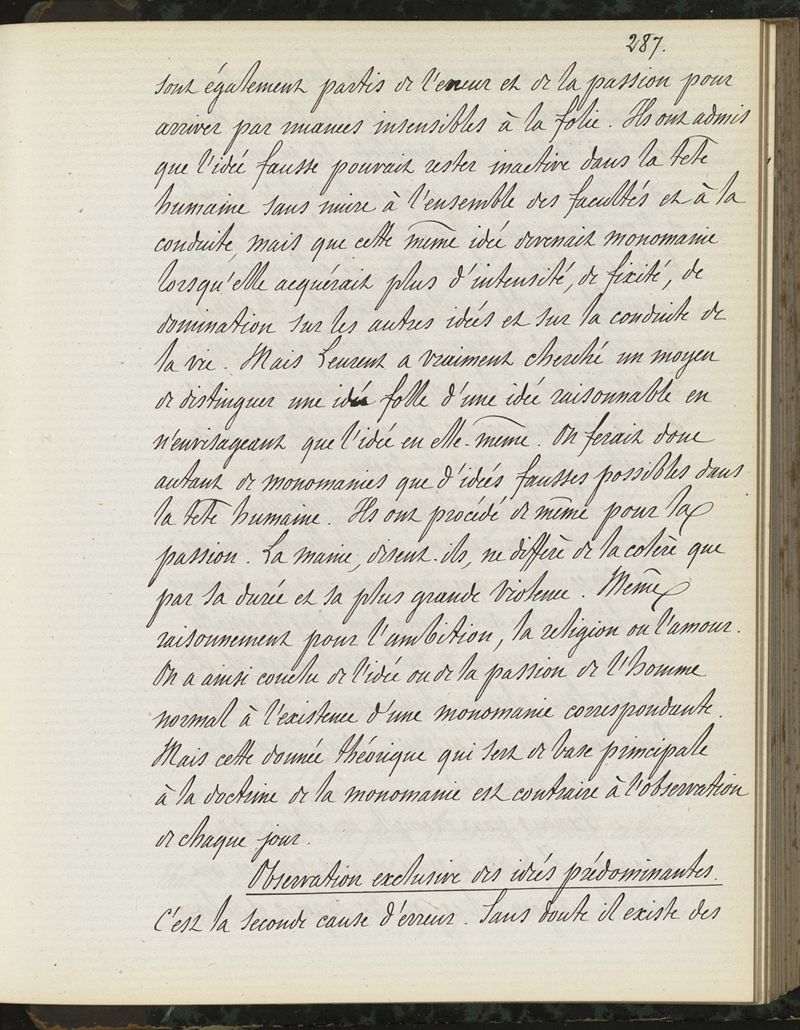 287.
sont également partis de l'erreur et de la passion pour
arriver par nuances insensibles à la folie. Ils ont admis
que l'idée fausse pouvait rester inactive dans la tête
humaine sans nuire à l'ensemble des facultés et à la
conduite, mais que cette même idée devenait monomanie
lorsqu'elle acquérait plus d'intensité, de fixité, de
domination sur les autres idées et sur la conduite de
la vie. Mais Leuret a vraiment cherché un moyen
de distinguer une idée folle d'une idée raisonnable en
n'envisageant que l'idée en elle-même. On ferait donc
autant de monomanies que d'idées fausses possibles dans
la tête humaine. Ils ont procédé de même pour la
passion. La manie, disent-ils, ne diffère de la colère que
par sa durée et sa plus grande violence. Même
raisonnement pour l'ambition, la religion ou l'amour.
On a ainsi conclu de l'idée ou de la passion de l'homme
normal à l'existence d'une monomanie correspondante.
Mais cette donnée théorique qui sert de base principale
à la doctrine de la monomanie est contraire à l'observation
de chaque jour.
Observation exclusive des idées prédominantes.
C'est la seconde cause d'erreur. Sans doute il existe des